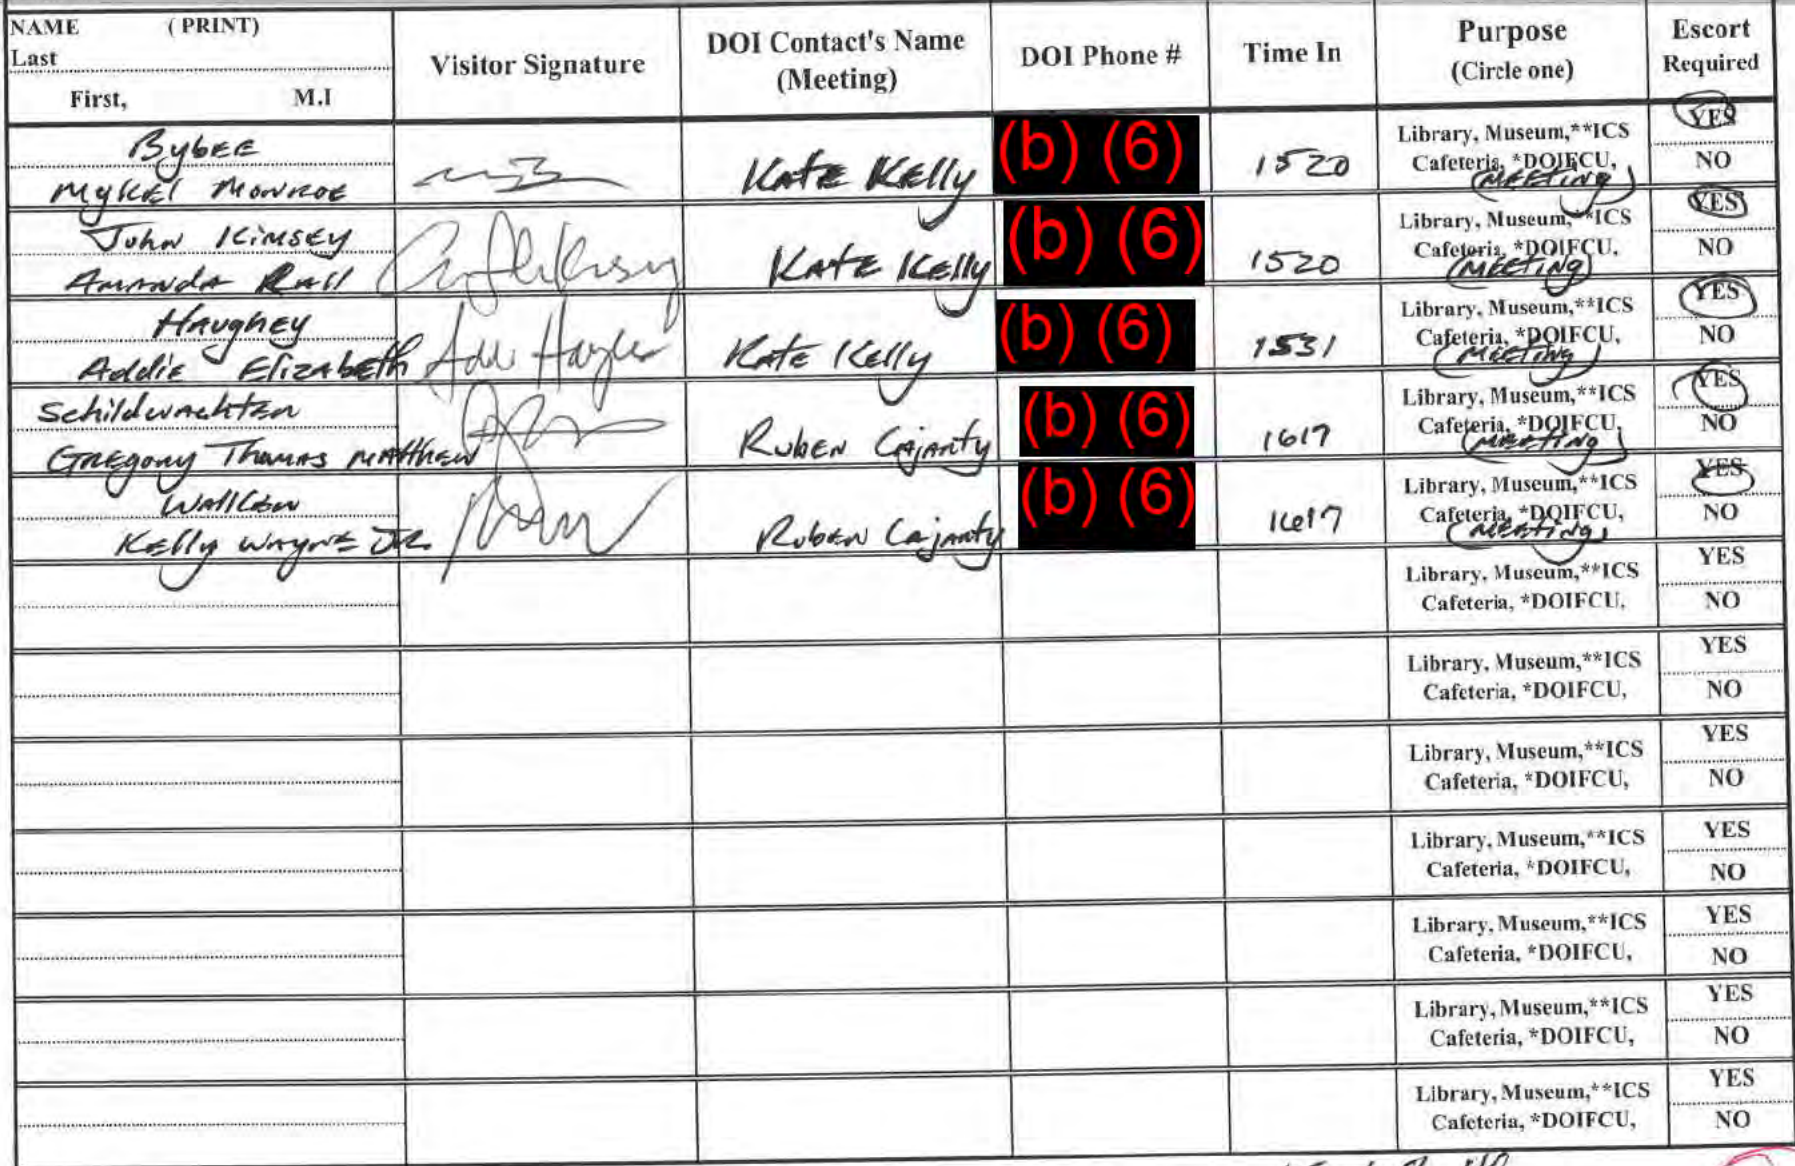 NAME ( PRINT)
Last
First, M.I
Visitor Signature
DOI Contact's Name
(Meeting)
DOI Phone #
Time In
Purpose
(Circle one)
Escort
Required
Bybee
Mykel Monroe
Kate Kelly
(b) (6)
1520
Library, Museum,**ICS
Cafeteria, *DOIFCU,
(MEETING)
YES
NO
John Kimsey
Amanda Rall
Kate Kelly
(b) (6)
1520
Library, Museum,**ICS
Cafeteria, *DOIFCU,
(MEETING)
YES
NO
Haughey
Addie Elizabeth
Kate Kelly
(b) (6)
1531
Library, Museum,**ICS
Cafeteria, *DOIFCU,
(MEETING)
YES
NO
Schildwachter
Gregory Thomas Matthew
Ruben
(b) (6)
1617
Library, Museum,**ICS
Cafeteria, *DOIFCU,
(MEETING)
YES
NO
Kelly Wayne Jr.
Ruben
(b) (6)
1617
Library, Museum,**ICS
Cafeteria, *DOIFCU,
(MEETING)
YES
NO
Library, Museum,**ICS
Cafeteria, *DOIFCU,
YES
NO
Library, Museum,**ICS
Cafeteria, *DOIFCU,
YES
NO
Library, Museum,**ICS
Cafeteria, *DOIFCU,
YES
NO
Library, Museum,**ICS
Cafeteria, *DOIFCU,
YES
NO
Library, Museum,**ICS
Cafeteria, *DOIFCU,
YES
NO
Library, Museum,**ICS
Cafeteria, *DOIFCU,
YES
NO
Library, Museum,**ICS
Cafeteria, *DOIFCU,
YES
NO